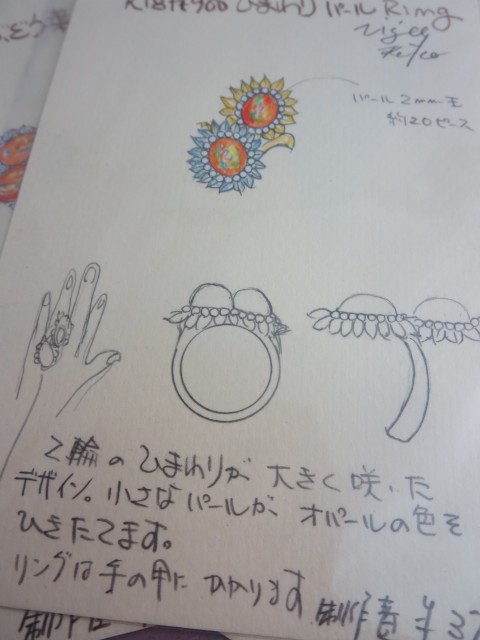 ひまわり パール Ring
パール2mm玉
約120ピース
2輪のひまわりが大きく咲いた
デザイン。小さなパールが、オパールの色を
ひきたてます。
リングは手の甲にかかります
制作